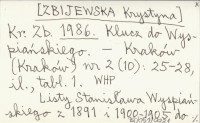 [ZBIJEWSKA Krystyna]
Kr. Zb. 1986. Klucz do Wys-
piańskiego. — Kraków
(Kraków) nr 2 (10): 25-28,
il., tabl. 1. WHP
Listy Stanisława Wyspiań-
skiego z 1891 i 1900-1905 do